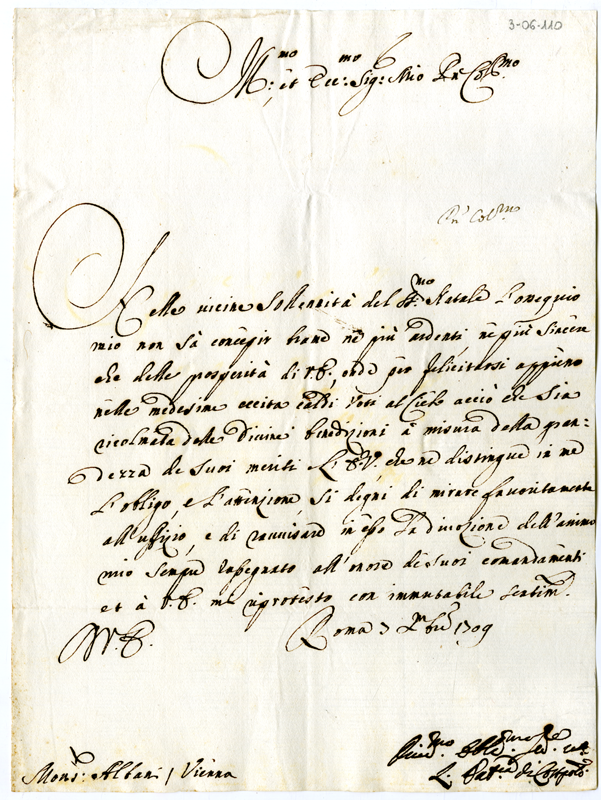 3-06-110
Ill:mo et Ecc:mo Sig: Mio Pn Col:mo
Pn Col:mo
Nelle vicine Sollennità del S:mo Natale l'ossequio
mio non sà concepir brame nè più ardenti, nè più sincere
che delle prosperità di V.E., onde per felicitarsi appieno
nelle medesime eccita caldi Voti al Cielo acciò che Sia
ricolmata delle Divine benedizioni à misura della gran-
dezza de Suoi meriti. L'E.V., che ne distingue in me
l'obligo, e l'attenzione, Si degni di mirare favoritamente
all'uffizio, e di ravvisare in esso la divozione dell'animo
mio Sempre impegnato all'onore de Suoi comandamenti
et à V.E. mi riprotesto con immutabile Sentim.
V.E. Roma 7 Xbre 1709
Mons: Albani / Vienna
L. Pat:ca di Costpoli: